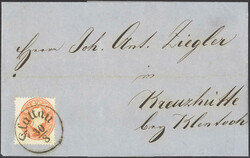 Herrn Joh. Ant. Ziegler
in
Kreuzhütte
bey Klentsch
30